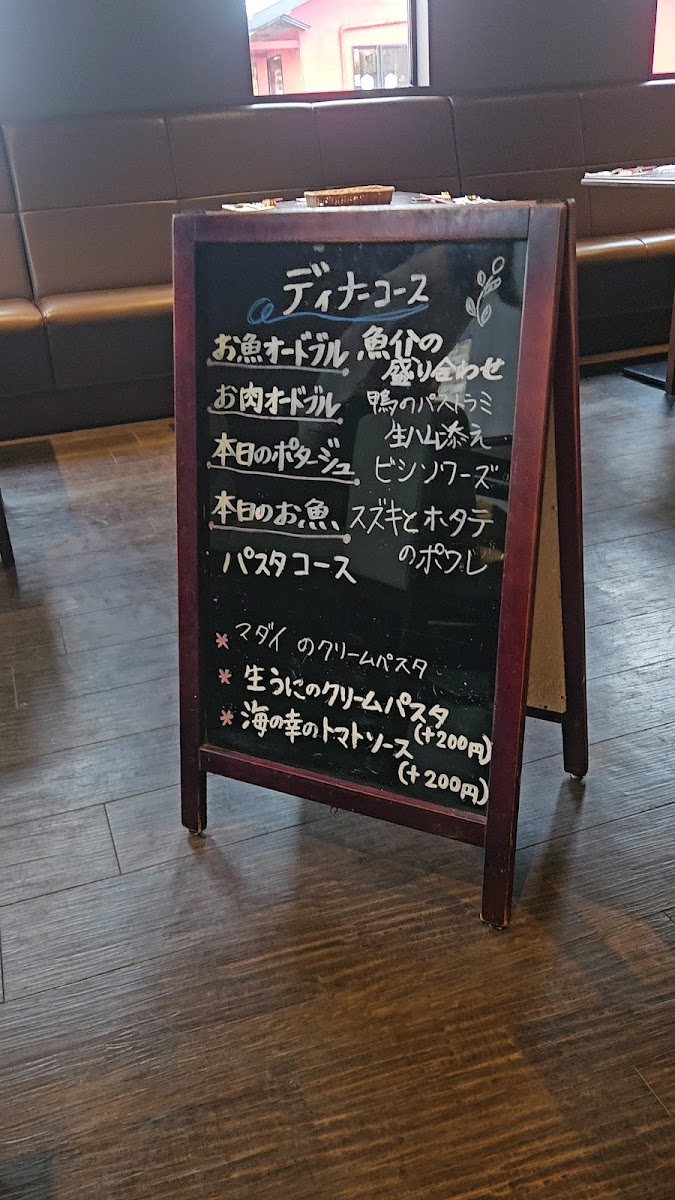 ディナーコース
お魚オードブル 魚介の
盛り合わせ
お肉オードブル 鴨のパストラミ
生ハム添え
本日のポタージュ ビシソワーズ
本日のお魚 スズキとホタテ
のポワレ
パスタコース
* マダイのクリームパスタ
* 生うにのクリームパスタ
(+200円)
* 海の幸のトマトソース
(+200円)